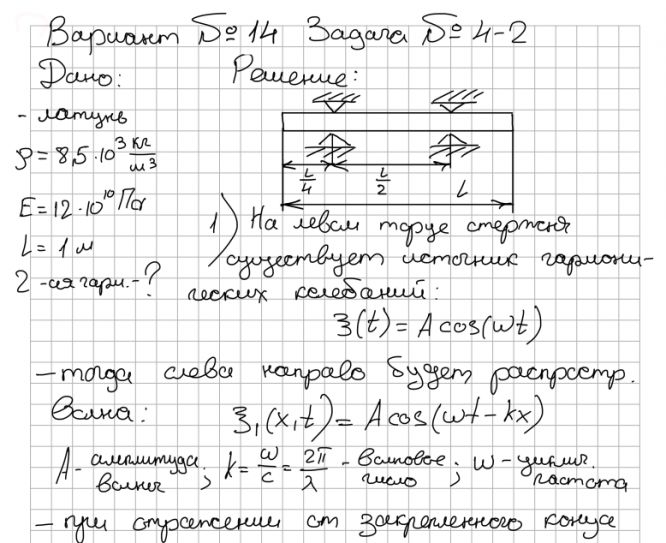 Вариант № 14 Задача № 4-2
Дано: Решение:
- латунь
ρ = 8,5·10³ кг/м³
E = 12·10¹⁰ Па
L = 1 м
2 -ая гарм. - ?
L/4 L/2 L
1) На левом торце стержня
существует источник гармони-
ческих колебаний:
ξ(t) = A cos(ωt)
- тогда слева направо будет распростр.
волна: ξ₁(x,t) = A cos(ωt - kx)
A - амплитуда волны; k = ω/c = 2π/λ - волновое число; ω - циклич. частота
- при отражении от закрепленного конца